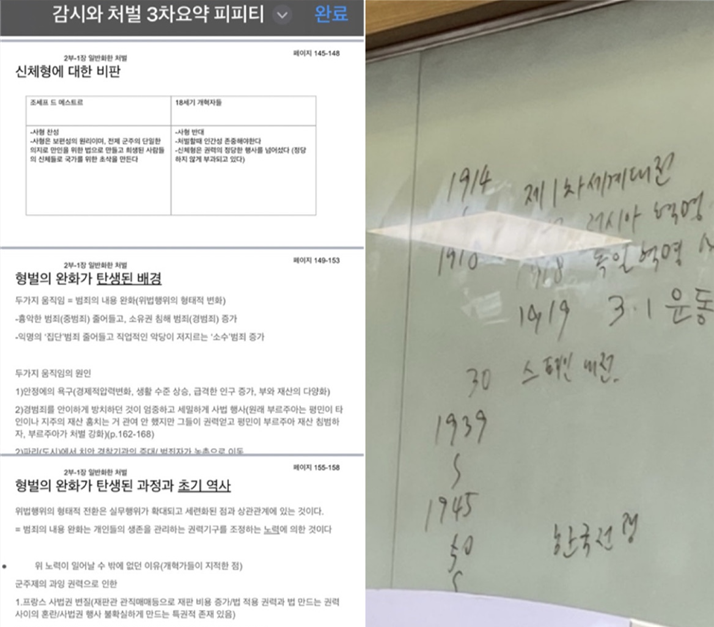 감시와 처벌 3차요약 피피티
완료
2부-1장 일반화한 처벌
페이지 145-148
신체형에 대한 비판
조세프 드 메스트르
18세기 개혁자들
-사형 찬성
-사형은 보편성의 원리이며, 전제 군주의 단일한
의지로 만인을 위한 법으로 만들고 희생된 사람들
의 신체들로 국가를 위한 초석을 만든다
-사형 반대
-처벌할때 인간성 존중해야한다
-신체형은 권력의 정당한 행사를 넘어섰다 (정당
하지 않게 부과되고 있다)
2부-1장 일반화한 처벌
페이지 149-153
형벌의 완화가 탄생된 배경
두가지 움직임 = 범죄의 내용 완화(위법행위의 형태적 변화)
-흉악한 범죄(중범죄) 줄어들고, 소유권 침해 범죄(경범죄) 증가
-익명의 '집단'범죄 줄어들고 직업적인 악당이 저지르는 '소수'범죄 증가
두가지 움직임의 원인
1)안정에의 욕구(경제적압력변화, 생활 수준 상승, 급격한 인구 증가, 부와 재산의 다양화)
2)경범죄를 안이하게 방치하던 것이 엄중하고 세밀하게 사법 행사(원래 부르주아는 평민이 타
인이나 지주의 재산 훔치는 거 관여 안 했지만 그들이 권력얻고 평민이 부르주아 재산 침범하
자, 부르주아가 처벌 강화)(p.162-168)
2부-1장 일반화한 처벌
페이지 155-158
형벌의 완화가 탄생된 과정과 초기 역사
위법행위의 형태적 전환은 실무행위가 확대되고 세련화된 점과 상관관계에 있는 것이다.
= 범죄의 내용 완화는 개인들의 생존을 관리하는 권력기구를 조정하는 노력에 의한 것이다
• 위 노력이 일어날 수 밖에 없던 이유(개혁가들이 지적한 점)
군주제의 과잉 권력으로 인한
1.프랑스 사법권 변질(재판관 관직매매등으로 재판 비용 증가/법 적용 권력과 법 만드는 권력
사이의 혼란/사법권 행사 불확실하게 만드는 특권적 존재 있음)
1914 제1차세계대전
러시아 혁명
독일혁명
1919 3·1 운동
30 스페인 내전
1939
1945
50 한국전쟁